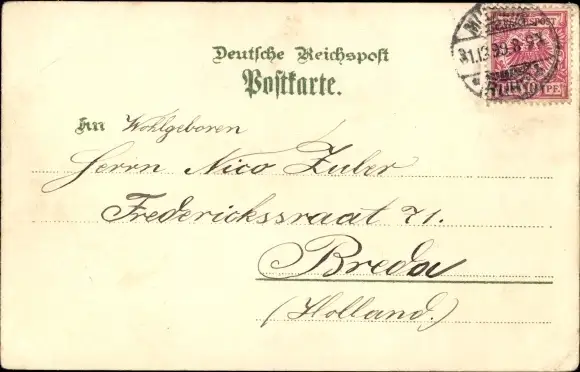 REICHSPOST
31.12.99.8-9N.
PF.
Deutsche Reichspost
Postkarte.
An Wohlgeboren
Herrn Nico Zuler
Frederickssraat 71.
Breda
(Holland.)